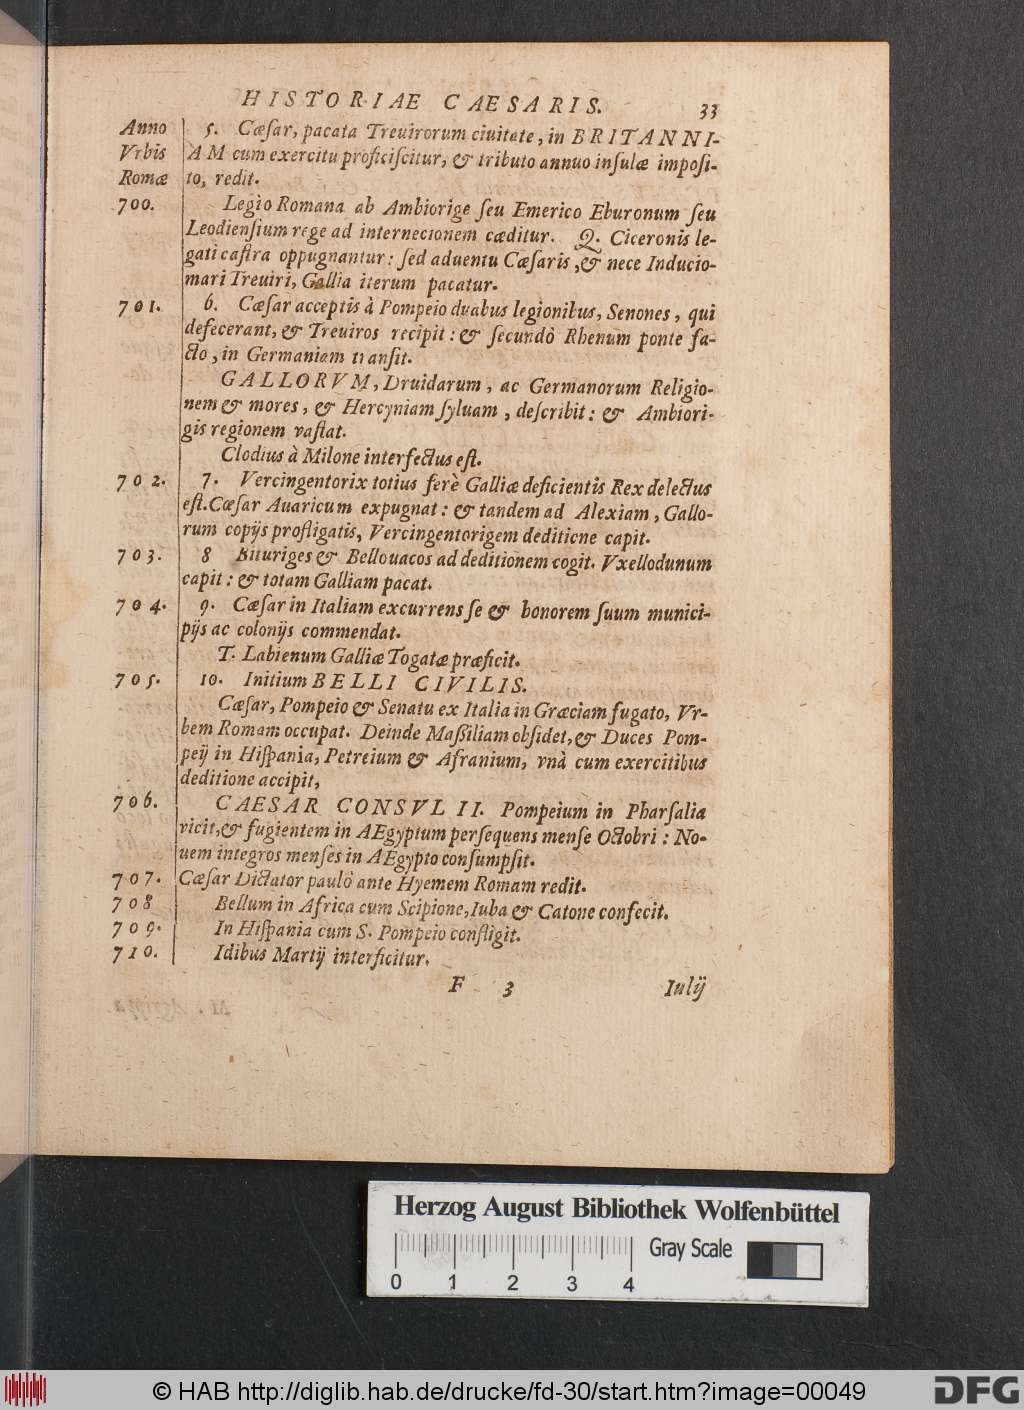 HISTORIAE CAESARIS. 33
Anno 5. Cæsar, pacata Treuirorum ciuitate, in BRITANNI-
Vrbis AM cum exercitu proficiscitur, & tributo annuo insulæ imposi-
Romæ to, redit.
700. Legio Romana ab Ambiorige seu Emerico Eburonum seu
Leodiensium rege ad internecionem cæditur. Q. Ciceronis le-
gati castra oppugnantur: sed aduentu Cæsaris, & nece Inducio-
mari Treuiri, Gallia iterum pacatur.
701. 6. Cæsar acceptis à Pompeio duabus legionibus, Senones, qui
defecerant, & Treuiros recipit: & secundò Rhenum ponte fa-
cto, in Germaniam transit.
GALLORVM, Druidarum, ac Germanorum Religio-
nem & mores, & Hercyniam syluam, describit: & Ambiori-
gis regionem vastat.
Clodius à Milone interfectus est.
702. 7. Vercingentorix totius ferè Galliæ deficientis Rex delectus
est. Cæsar Auaricum expugnat: & tandem ad Alexiam, Gallo-
rum copijs profligatis, Vercingentorigem deditione capit.
703. 8 Bituriges & Bellouacos ad deditionem cogit. Vxellodunum
capit: & totam Galliam pacat.
704. 9. Cæsar in Italiam excurrens se & honorem suum munici-
pijs ac colonijs commendat.
T. Labienum Galliæ Togatæ præficit.
705. 10. Initium BELLI CIVILIS.
Cæsar, Pompeio & Senatu ex Italia in Græciam fugato, Vr-
bem Romam occupat. Deinde Massiliam obsidet, & Duces Pom-
peij in Hispania, Petreium & Afranium, vnà cum exercitibus
deditione accipit,
706. CAESAR CONSVL II. Pompeium in Pharsalia
vicit, & fugientem in AEgyptum persequens mense Octobri: No-
uem integros menses in AEgypto consumpsit.
707. Cæsar Dictator paulò ante Hyemem Romam redit.
708 Bellum in Africa cum Scipione, Iuba & Catone confecit.
709. In Hispania cum S. Pompeio confligit.
710. Idibus Martij interficitur.
F 3 Iulij
Herzog August Bibliothek Wolfenbüttel
Gray Scale
0 1 2 3 4
© HAB http://diglib.hab.de/drucke/fd-30/start.htm?image=00049
DFG